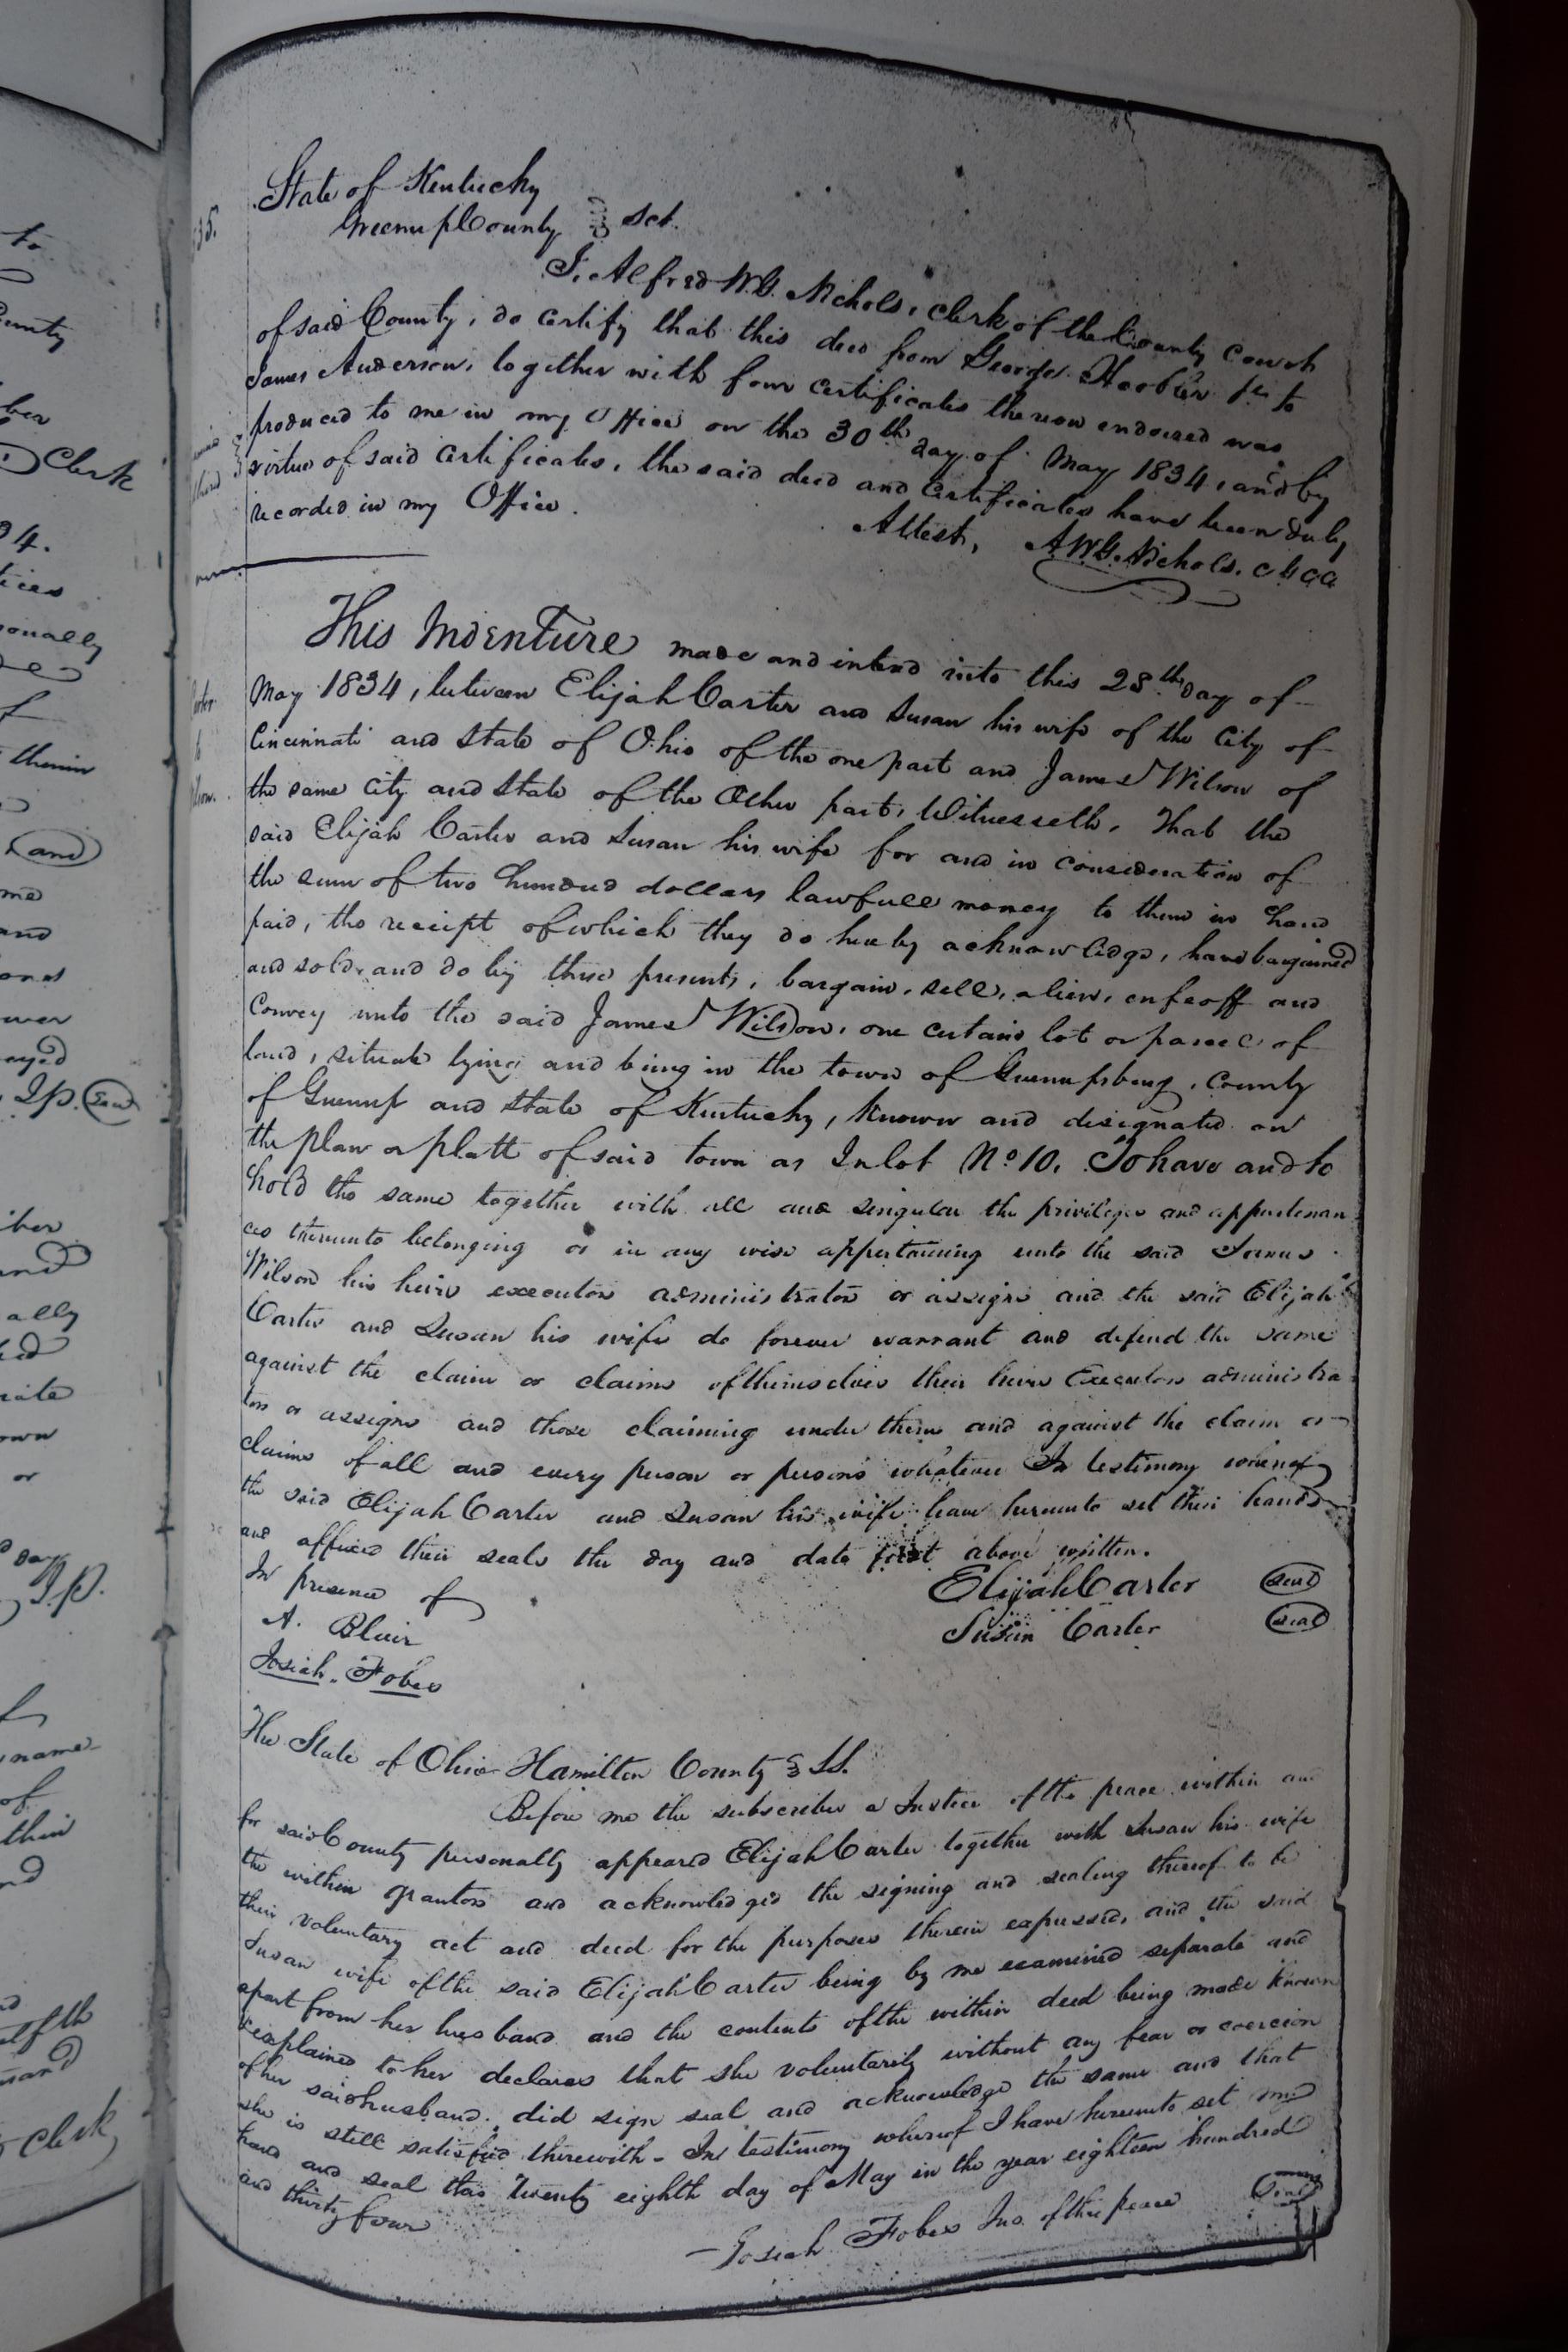 State of Kentucky
Greenup County Sct.
I, Alfred W.G. Nichols, Clerk of the County Court
of said County, do certify that this deed from George Hoobler Jr to
James Anderson, together with four certificates thereon endorsed was
produced to me in my Office on the 30th day of May 1834, and by
virtue of said certificates, the said deed and certificates have been duly
recorded in my Office.
Attest, A.W.G. Nichols. C G C C
This Indenture made and intered into this 28th day of
May 1834, between Elijah Carter and Susan his wife of the City of
Cincinnati and State of Ohio of the one part and James Wilson of
the same City and State of the Other part, Witnesseth, That the
said Elijah Carter and Susan his wife for and in consideration of
the sum of two hundred dollars lawfull money to them in hand
paid, the receipt of which they do hereby acknowledge, have bargained
and sold, and do by these presents, bargain, sell, alien, enfeoff and
Convey unto the said James Wilson, one certain lot or parcel of
land, situate lying and being in the town of Greenupsburg, County
of Greenup and State of Kentucky, known and designated on
the plan or platt of said town as Inlot No 10. To have and to
hold the same together with all and singular the privileges and appurtenan
ces thereunto belonging or in any wise appertaining unto the said James
Wilson his heirs executors administrators or assigns and the said Elijah
Carter and Susan his wife do forever warrant and defend the same
against the claim or claims of themselves their heirs Executors administra
tors or assigns and those claiming under them and against the claim or
claims of all and every person or persons whatever In testimony whereof
the said Elijah Carter and Susan his wife have hereunto set their hands
and affixed their seals the day and date first above written.
In presence of Elijah Carter Seal
A. Blair Susan Carter seal
Josiah Fobes
The State of Ohio Hamilton County SS.
Before me the subscriber a Justice of the peace within and
for said County personally appeared Elijah Carter together with Susan his wife
the within grantors and acknowledged the signing and sealing thereof to be
their voluntary act and deed for the purposes therein expressed, and the said
Susan wife of the said Elijah Carter being by me examined separate and
apart from her husband and the contents of the within deed being made known
& explained to her declares that she voluntarily without any fear or coercion
of her said husband did sign seal and acknowledge the same and that
she is still satisfied therewith - In testimony whereof I have hereunto set my
hand and seal this Twenty eighth day of May in the year eighteen hundred
and thirty four
Josiah Fobes Jus. of the peace Seal